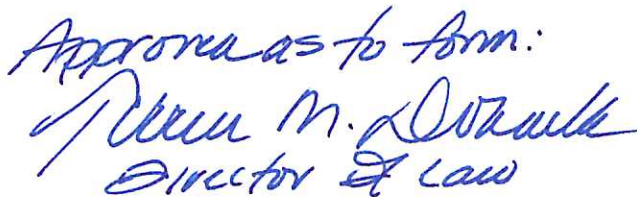 Approved as to form:
M.
Director of Law